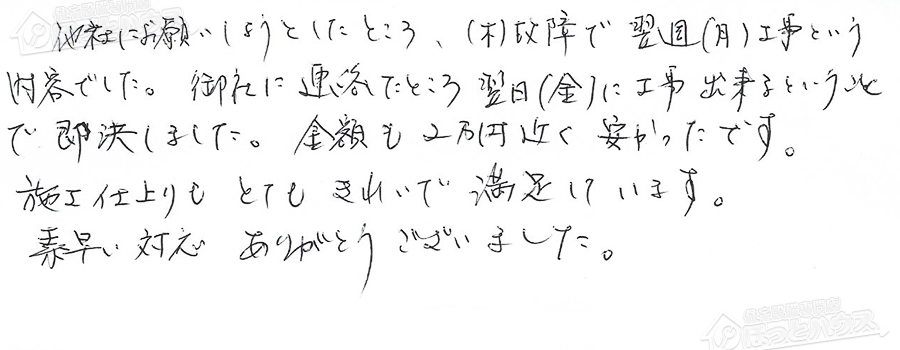 他社にお願いしようとしたところ、(木)故障で翌週(月)工事という
内容でした。御社に連絡したところ翌日(金)に工事出来るという比
で即決しました。金額も2万円近く安かったです。
施工仕上りもとてもきれいで満足しています。
素早い対応ありがとうございました。
ほっとハウス